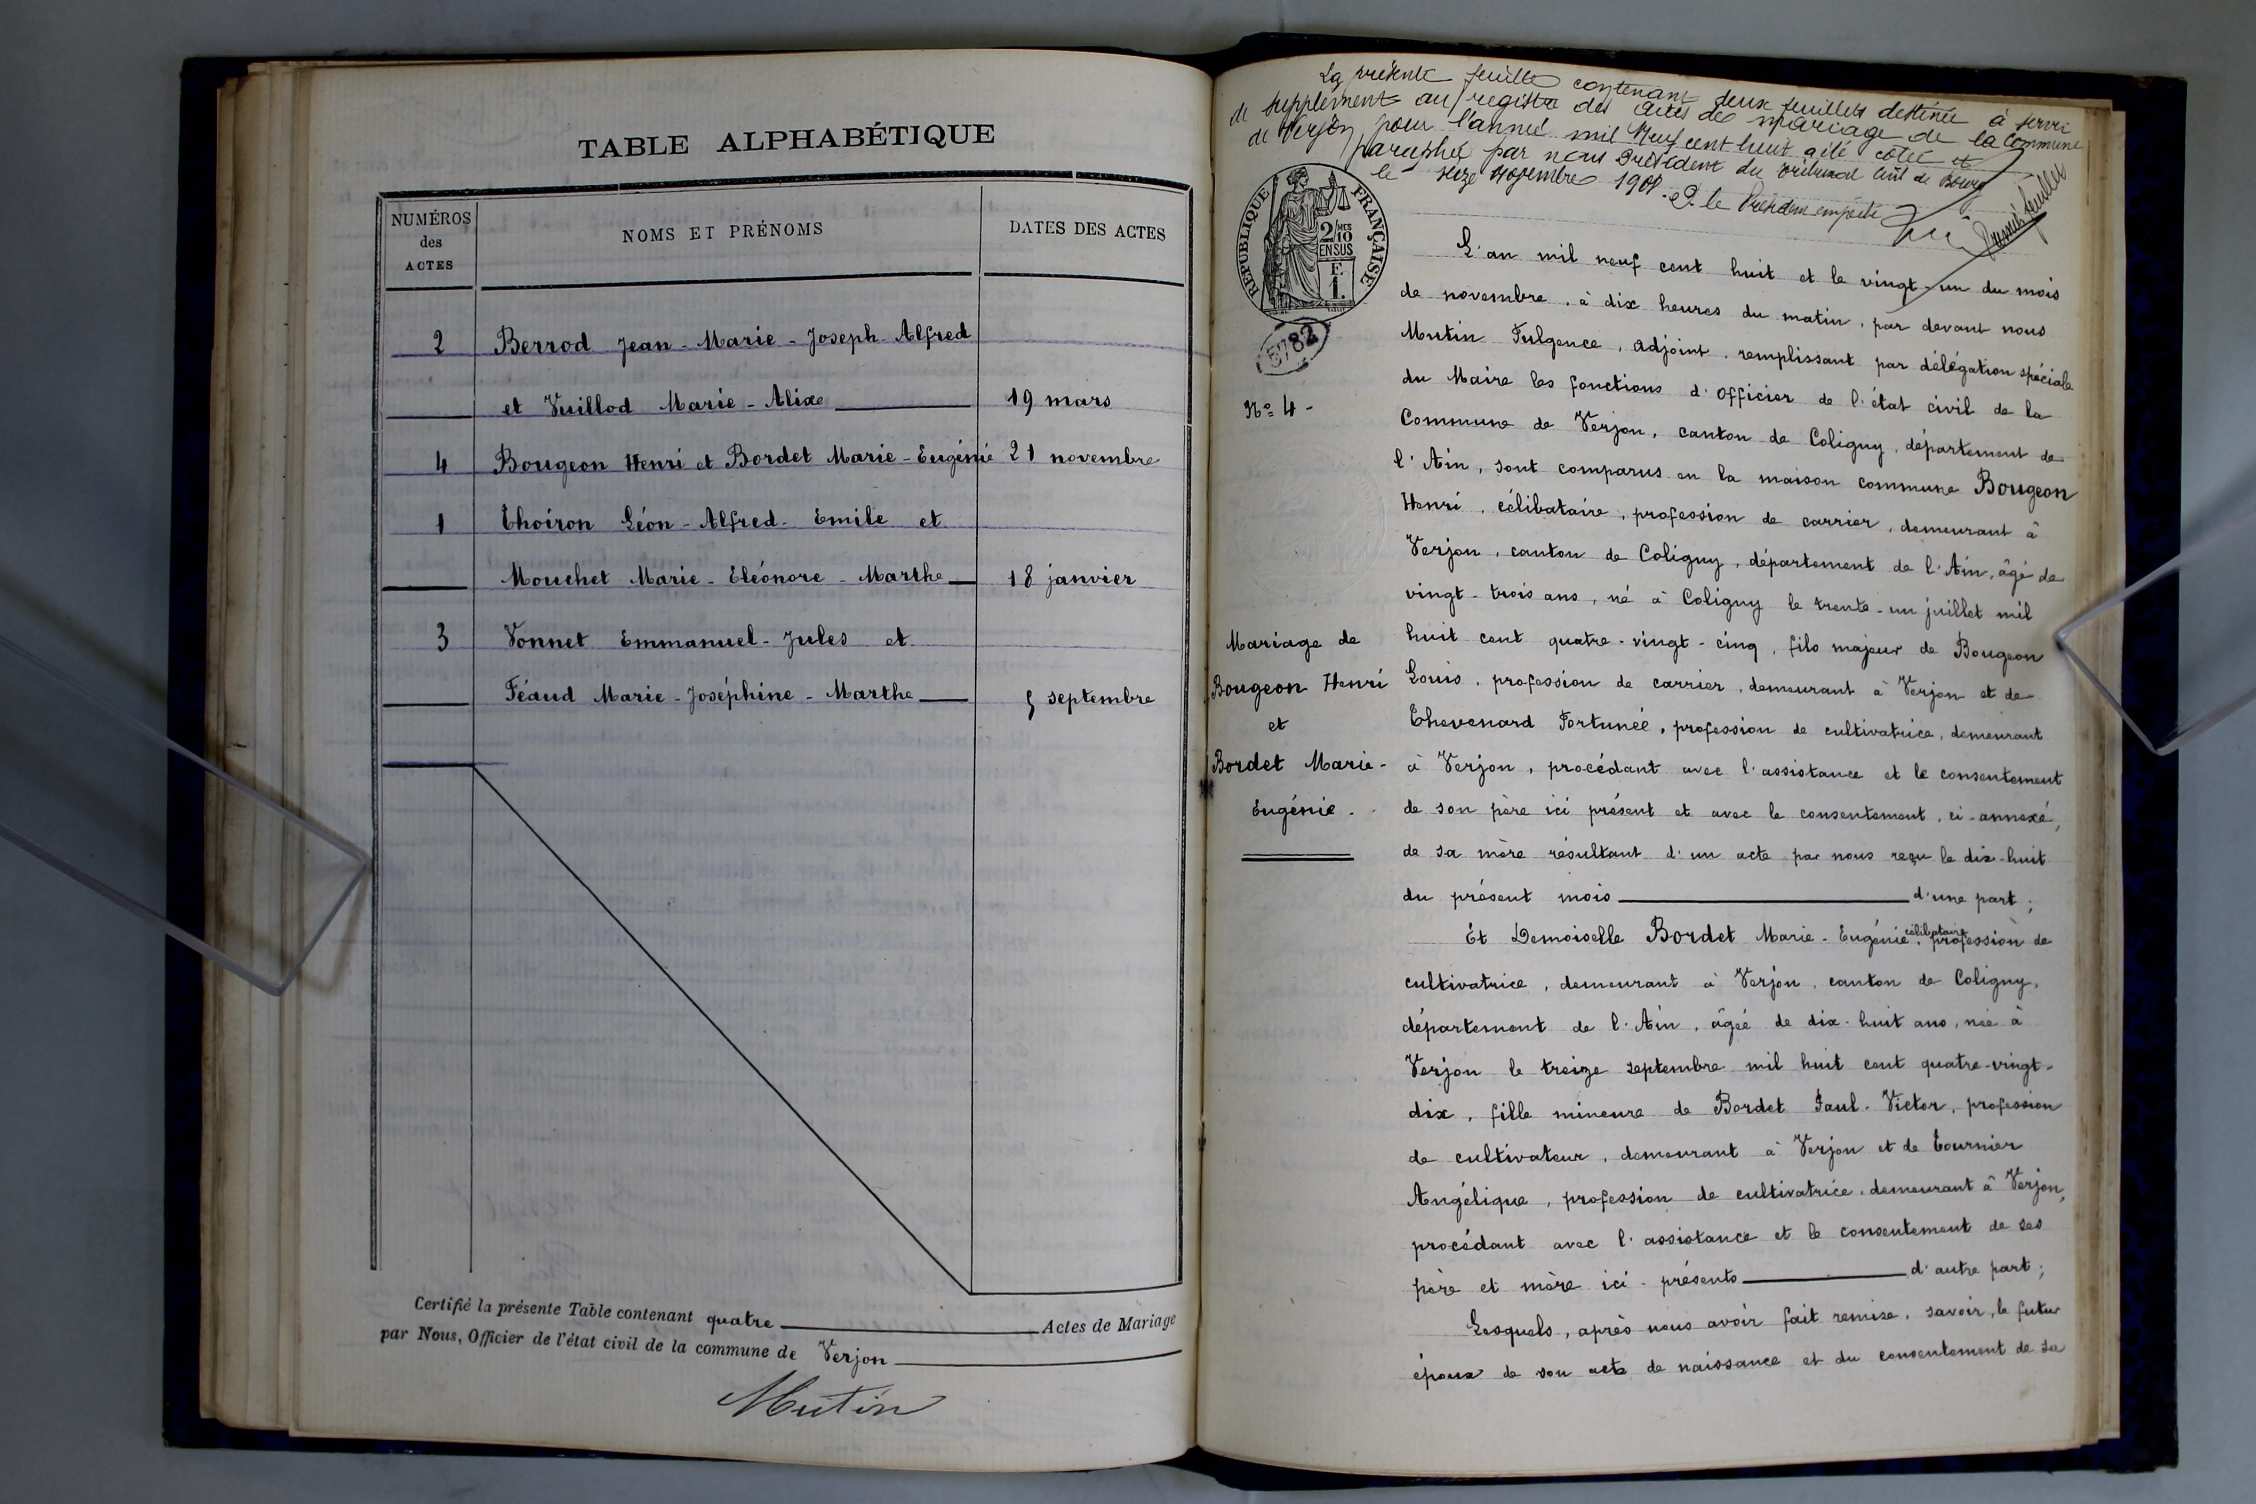 TABLE ALPHABÉTIQUE
NUMÉROS des ACTES
NOMS ET PRÉNOMS
DATES DES ACTES
2 Berrod Jean-Marie-Joseph-Alfred
et Vuillod Marie-Alixe 19 mars
4 Bougeon Henri et Bordet Marie-Eugénie 21 novembre
1 Thoiron Léon-Alfred-Emile et
Mouchet Marie-Eléonore-Marthe 18 janvier
3 Vonnet Emmanuel-Jules et
Féaud Marie-Joséphine-Marthe 5 septembre
Certifié la présente Table contenant quatre Actes de Mariage
par Nous, Officier de l'état civil de la commune de Verjon
Mutin
La présente feuille contenant deux feuillets destinée à servir
de supplément au registre des actes de mariage de la Commune
de Verjon pour l'année mil neuf cent huit a été côtée et
paraphée par nous Président du tribunal civil de Bourg
le seize Novembre 1908. P. le Président empêché
Premier feuillet
RÉPUBLIQUE FRANÇAISE
2/10 MES
EN SUS
F.
1.
5782
L'an mil neuf cent huit et le vingt-un du mois
de novembre, à dix heures du matin, par devant nous
Mutin Fulgence, adjoint, remplissant par délégation spéciale
du Maire les fonctions d'officier de l'état civil de la
N° 4 -
Commune de Verjon, canton de Coligny, département de
l'Ain, sont comparus en la maison commune Bougeon
Henri, célibataire, profession de carrier, demeurant à
Verjon, canton de Coligny, département de l'Ain, âgé de
vingt-trois ans, né à Coligny le trente-un juillet mil
huit cent quatre-vingt-cinq, fils majeur de Bougeon
Louis, profession de carrier, demeurant à Verjon et de
Thevenard Fortunée, profession de cultivatrice, demeurant
à Verjon, procédant avec l'assistance et le consentement
de son père ici présent et avec le consentement, ci-annexé,
de sa mère résultant d'un acte par nous reçu le dix-huit
du présent mois d'une part;
Mariage de
Bougeon Henri
et
Bordet Marie-
Eugénie.
Et Demoiselle Bordet Marie-Eugénie, célibataire, profession de
cultivatrice, demeurant à Verjon, canton de Coligny,
département de l'Ain, âgée de dix-huit ans, née à
Verjon le treize septembre mil huit cent quatre-vingt-
dix, fille mineure de Bordet Paul-Victor, profession
de cultivateur, demeurant à Verjon et de Tournier
Angélique, profession de cultivatrice, demeurant à Verjon,
procédant avec l'assistance et le consentement de ses
père et mère ici-présents d'autre part;
Lesquels, après nous avoir fait remise, savoir, le futur
époux de son acte de naissance et du consentement de sa